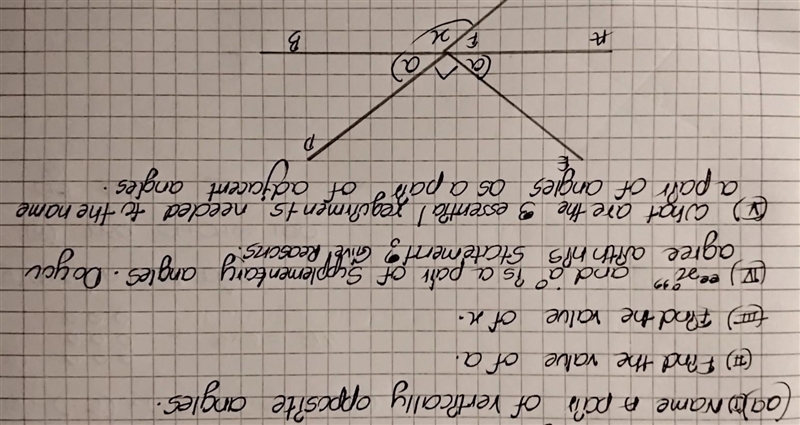 (aa)(I) Name a pair of vertically opposite angles.
(II) Find the value of a.
(III) Find the value of x.
(IV) "x°" and a° is a pair of supplementary angles. Do you
agree with his statement? Give Reasons.
(V) What are the 3 essential requirments needed to the name
a pair of angles as a pair of adjacent angles.
E D
a a
A F x B